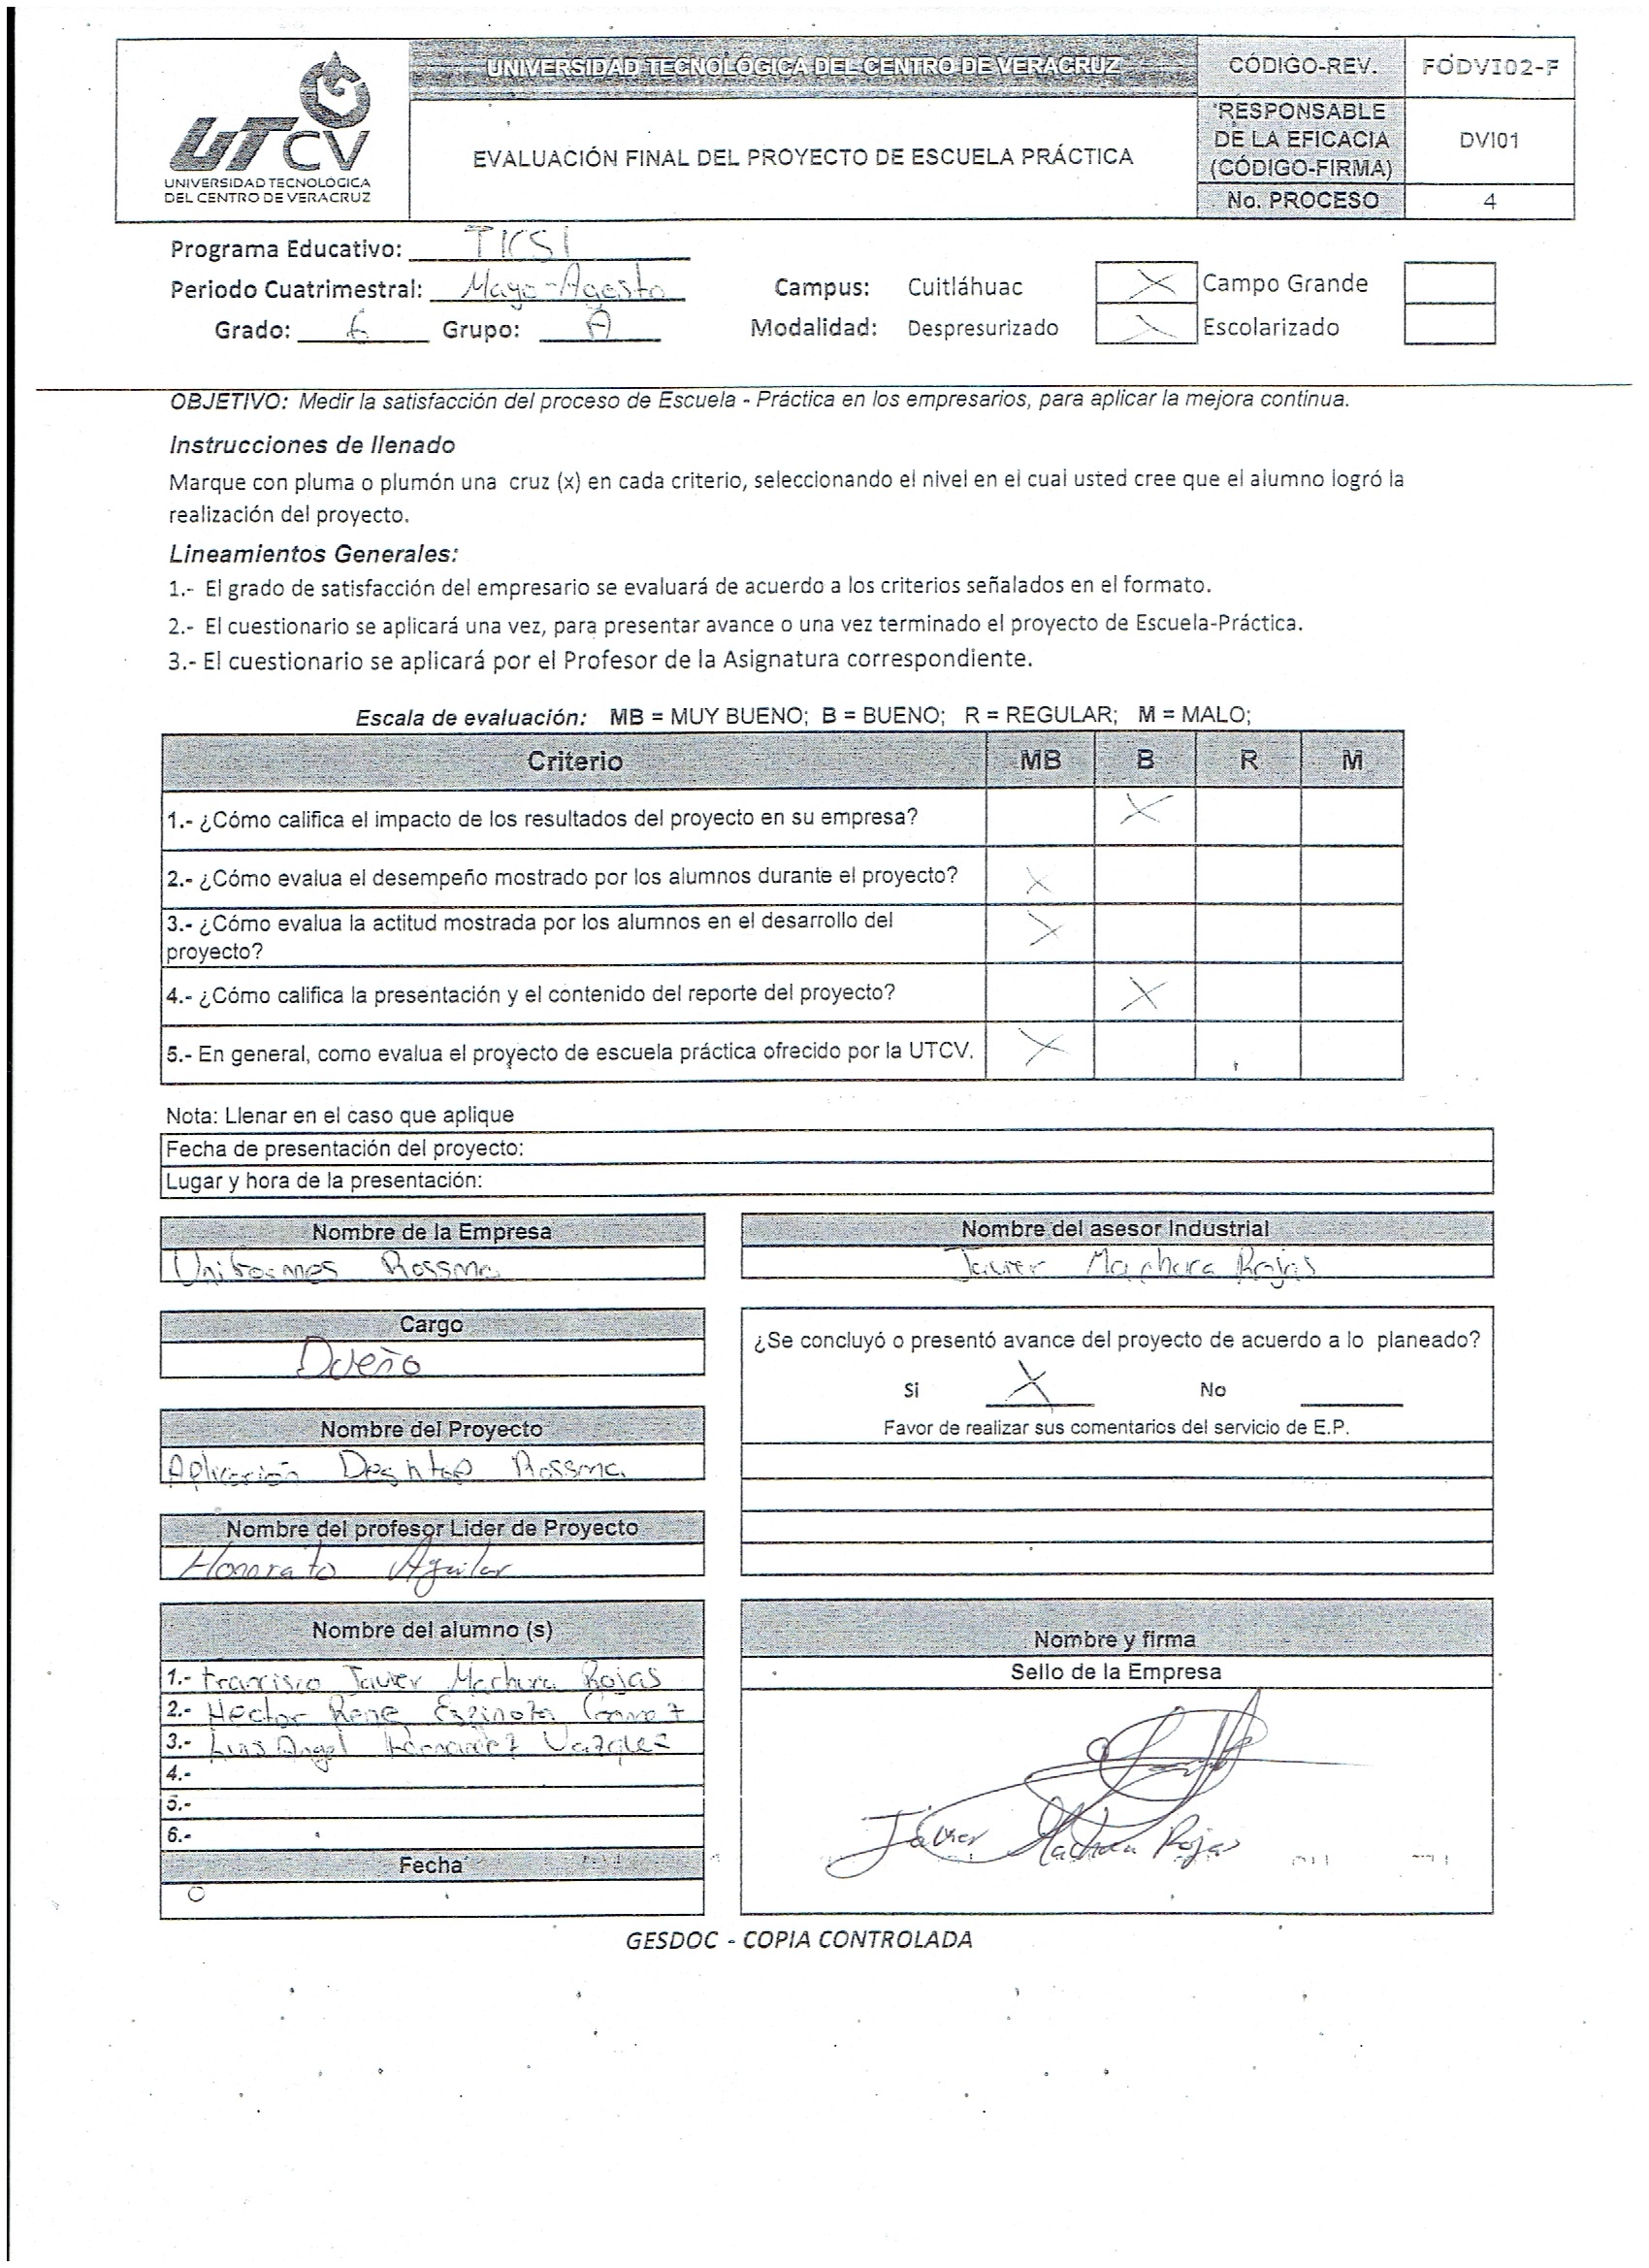 UNIVERSIDAD TECNOLÓGICA DEL CENTRO DE VERACRUZ
CÓDIGO-REV.
FODVI02-F
UTCV
UNIVERSIDAD TECNOLÓGICA
DEL CENTRO DE VERACRUZ
EVALUACIÓN FINAL DEL PROYECTO DE ESCUELA PRÁCTICA
RESPONSABLE
DE LA EFICACIA
(CÓDIGO-FIRMA)
DVI01
No. PROCESO
4
Programa Educativo: TICSI
Periodo Cuatrimestral: Mayo-Agosto Campus: Cuitláhuac X Campo Grande
Grado: 6 Grupo: A Modalidad: Despresurizado X Escolarizado
OBJETIVO: Medir la satisfacción del proceso de Escuela - Práctica en los empresarios, para aplicar la mejora continua.
Instrucciones de llenado
Marque con pluma o plumón una cruz (x) en cada criterio, seleccionando el nivel en el cual usted cree que el alumno logró la
realización del proyecto.
Lineamientos Generales:
1.- El grado de satisfacción del empresario se evaluará de acuerdo a los criterios señalados en el formato.
2.- El cuestionario se aplicará una vez, para presentar avance o una vez terminado el proyecto de Escuela-Práctica.
3.- El cuestionario se aplicará por el Profesor de la Asignatura correspondiente.
Escala de evaluación: MB = MUY BUENO; B = BUENO; R = REGULAR; M = MALO;
Criterio MB B R M
1.- ¿Cómo califica el impacto de los resultados del proyecto en su empresa? X
2.- ¿Cómo evalua el desempeño mostrado por los alumnos durante el proyecto? X
3.- ¿Cómo evalua la actitud mostrada por los alumnos en el desarrollo del
proyecto? X
4.- ¿Cómo califica la presentación y el contenido del reporte del proyecto? X
5.- En general, como evalua el proyecto de escuela práctica ofrecido por la UTCV. X
Nota: Llenar en el caso que aplique
Fecha de presentación del proyecto:
Lugar y hora de la presentación:
Nombre de la Empresa
Uniformes Rossma
Nombre del asesor Industrial
Javier Machura Rojas
Cargo
Dueño
¿Se concluyó o presentó avance del proyecto de acuerdo a lo planeado?
Si X No
Favor de realizar sus comentarios del servicio de E.P.
Nombre del Proyecto
Aplicación Desktop Rossma
Nombre del profesor Lider de Proyecto
Honorato Aguilar
Nombre del alumno (s)
1.- Francisco Javier Machura Rojas
2.- Hector Rene Espinota
3.- Luis Angel Hernandez Vazquez
4.-
5.-
6.-
Fecha
Nombre y firma
Sello de la Empresa
Javier Machura Rojas
GESDOC - COPIA CONTROLADA